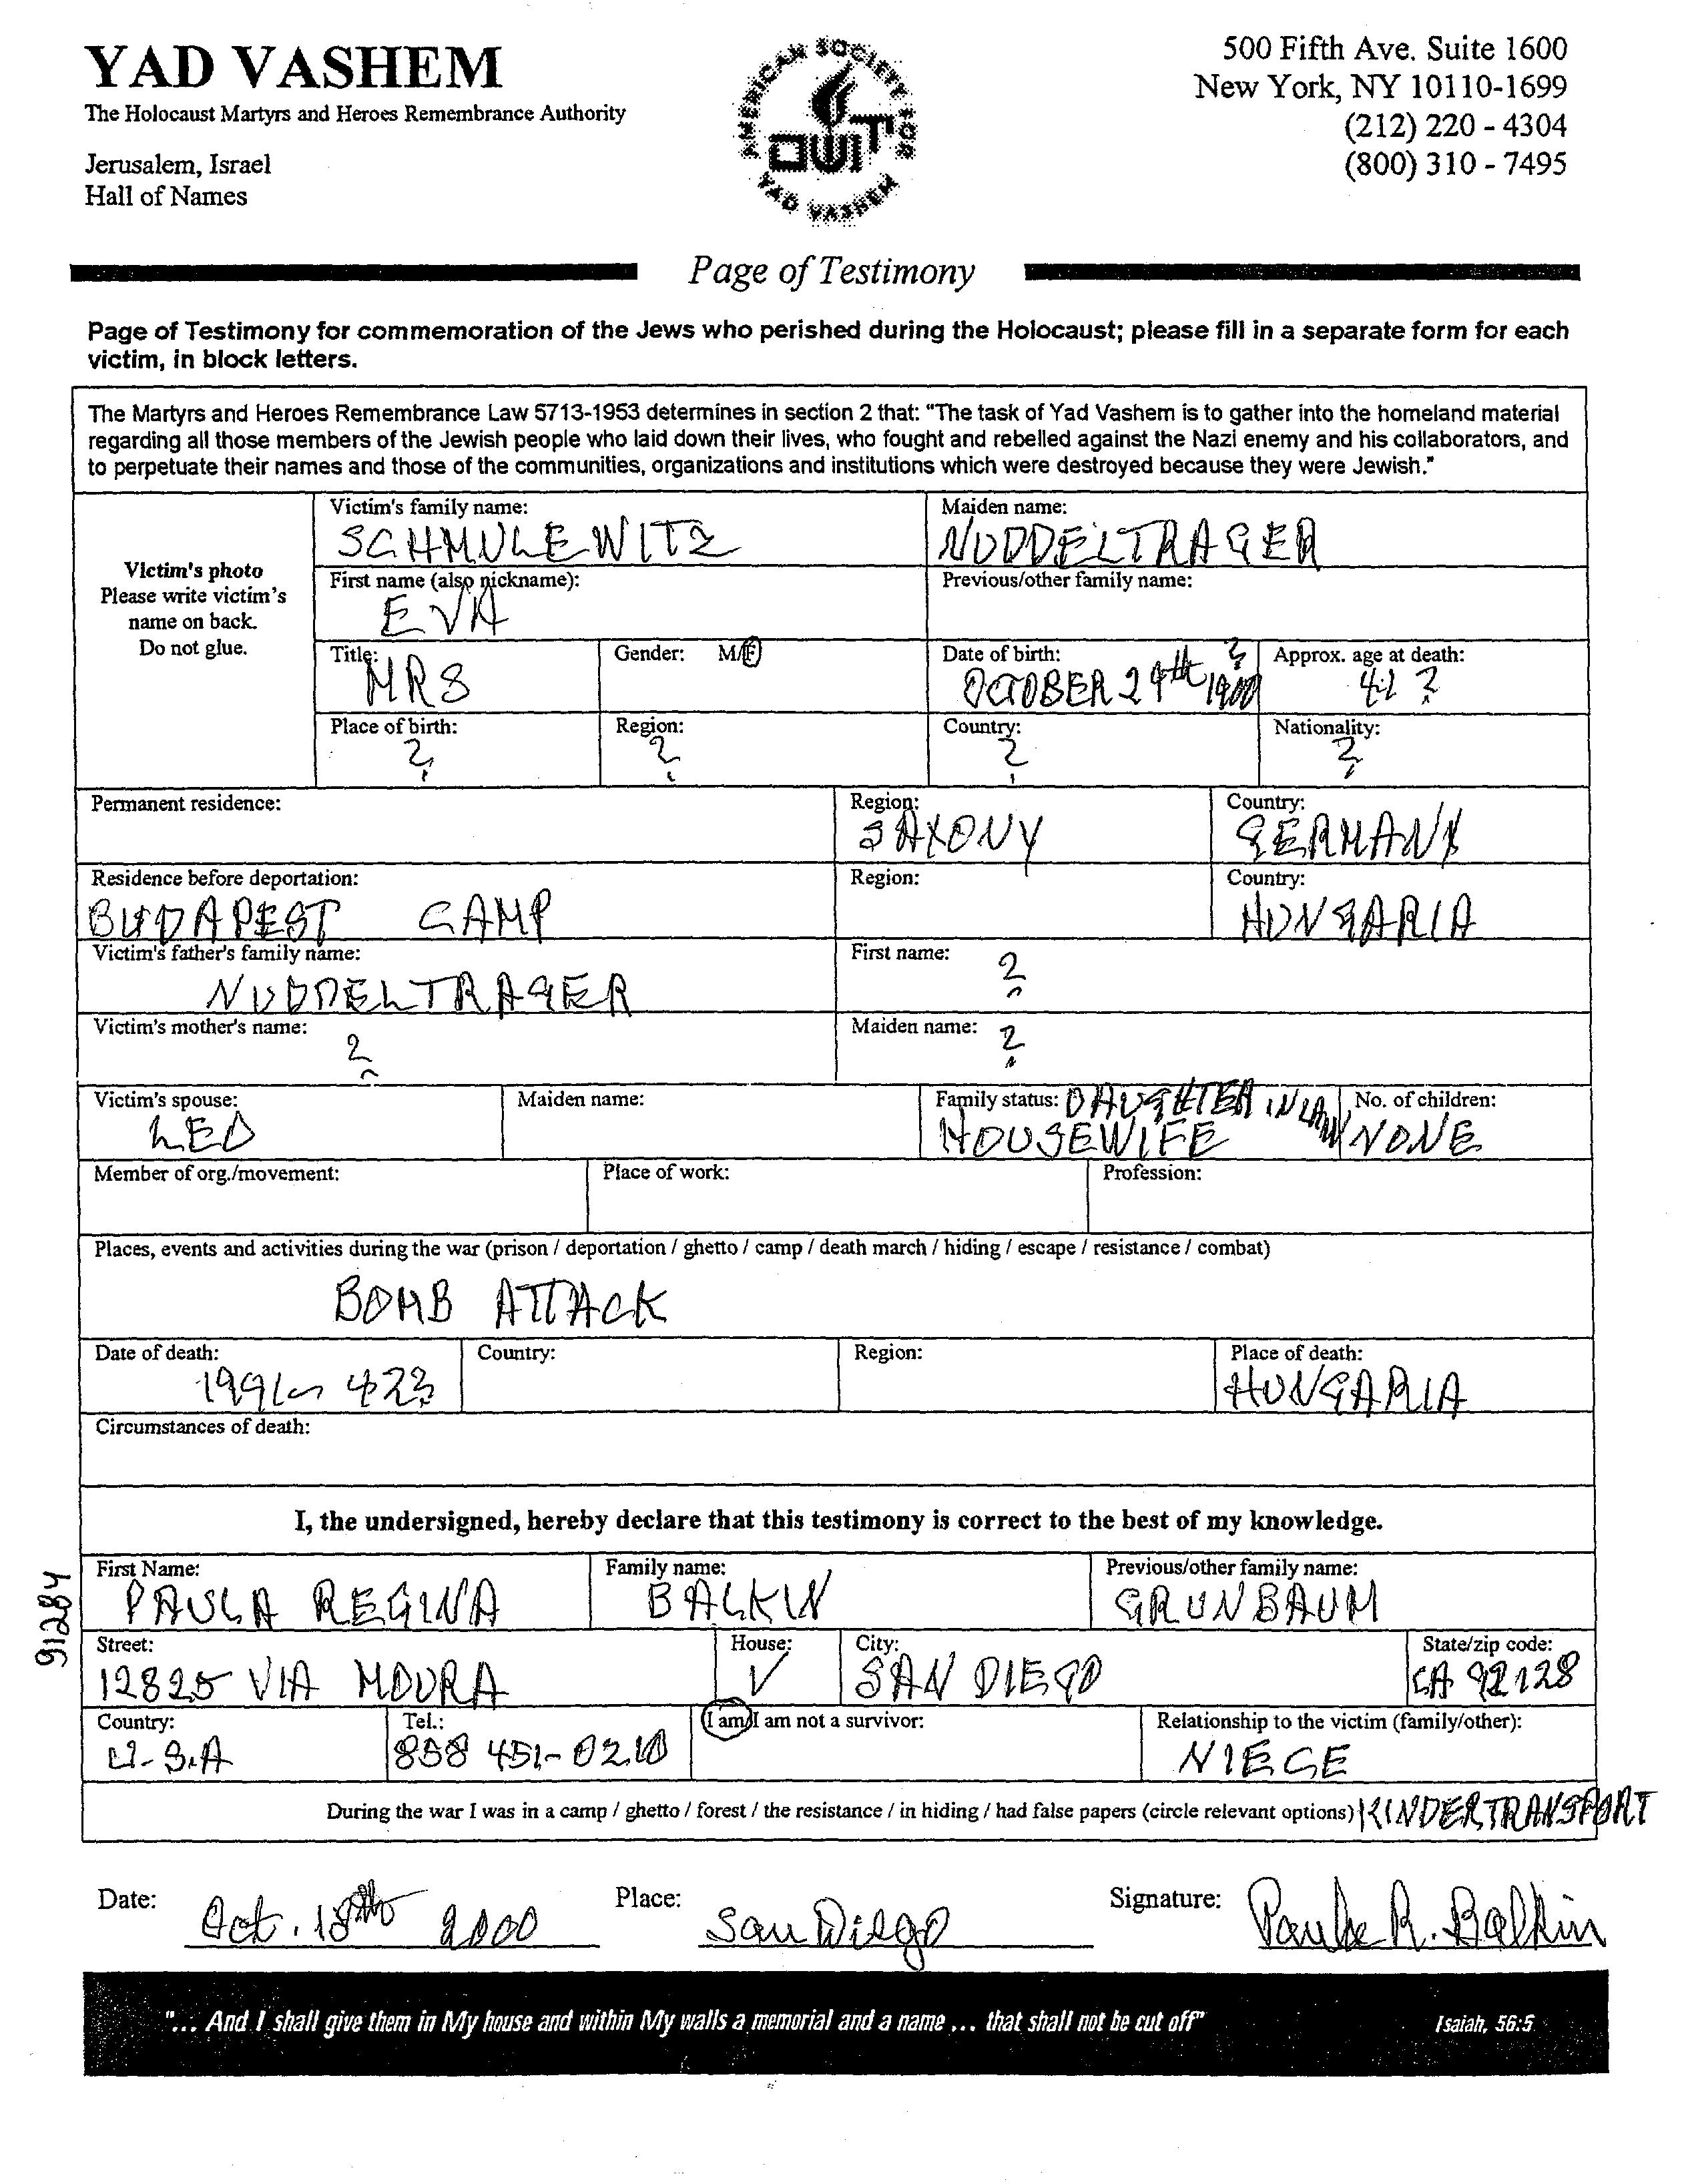 YAD VASHEM
The Holocaust Martyrs and Heroes Remembrance Authority
Jerusalem, Israel
Hall of Names
AMERICAN SOCIETY FOR
יד ושם
YAD VASHEM
500 Fifth Ave. Suite 1600
New York, NY 10110-1699
(212) 220 - 4304
(800) 310 - 7495
Page of Testimony
Page of Testimony for commemoration of the Jews who perished during the Holocaust; please fill in a separate form for each
victim, in block letters.
The Martyrs and Heroes Remembrance Law 5713-1953 determines in section 2 that: "The task of Yad Vashem is to gather into the homeland material
regarding all those members of the Jewish people who laid down their lives, who fought and rebelled against the Nazi enemy and his collaborators, and
to perpetuate their names and those of the communities, organizations and institutions which were destroyed because they were Jewish."
Victim's photo
Please write victim's
name on back.
Do not glue.
Victim's family name: Maiden name:
SCHMULEWITZ NUDDELTRAGER
First name (also nickname): Previous/other family name:
EVA
Title: Gender: M/F Date of birth: ? Approx. age at death:
MRS OCTOBER 29th 1900 42 ?
Place of birth: Region: Country: Nationality:
? ? ? ?
Permanent residence: Region: Country:
SAXONY GERMANY
Residence before deportation: Region: Country:
BUDAPEST CAMP HUNGARIA
Victim's father's family name: First name: ?
NUDDELTRAGER
Victim's mother's name: ? Maiden name: ?
Victim's spouse: Maiden name: Family status: DAUGHTER IN LAW No. of children:
LEO HOUSEWIFE NONE
Member of org./movement: Place of work: Profession:
Places, events and activities during the war (prison / deportation / ghetto / camp / death march / hiding / escape / resistance / combat)
BOMB ATTACK
Date of death: Country: Region: Place of death:
HUNGARIA
Circumstances of death:
I, the undersigned, hereby declare that this testimony is correct to the best of my knowledge.
91284
First Name: Family name: Previous/other family name:
PAULA REGINA BALKIN GRUNBAUM
Street: House: City: State/zip code:
12825 VIA MOURA ✓ SAN DIEGO CA 92128
Country: Tel.: I am/I am not a survivor: Relationship to the victim (family/other):
U.S.A 858 451-0210 NIECE
During the war I was in a camp / ghetto / forest / the resistance / in hiding / had false papers (circle relevant options) KINDERTRANSPORT
Date: Oct. 18th 2000 Place: San Diego Signature: Paula R. Balkin
"... And I shall give them in My house and within My walls a memorial and a name ... that shall not be cut off" Isaiah, 56:5